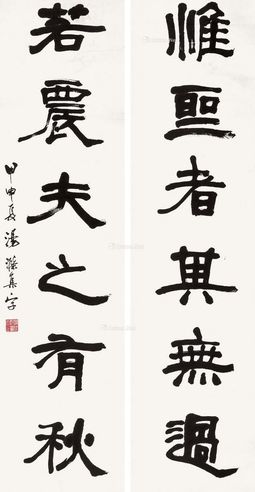 惟聖者其無過
若農夫之有秋
甲申夏潘滌集字